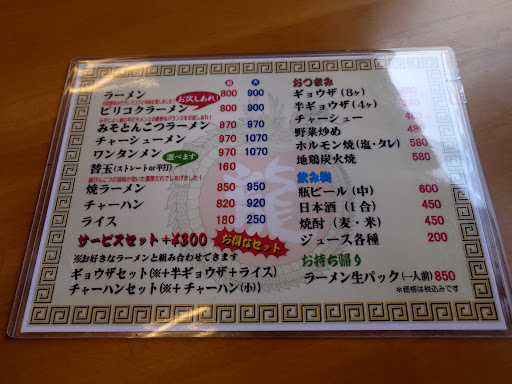 並 大
ラーメン 800 900
お試しあれ!
ピリコクラーメン 800 900
みそとんこつラーメン 870 970
チャーシューメン 970 1070
ワンタンメン 970 1070
選べます
替玉(ストレートor平打) 160
焼ラーメン 850 950
チャーハン 820 920
ライス 180 250
サービスセット +¥300
お得なセット
※お好きなラーメンと組み合わせできます
ギョウザセット(※+半ギョウザ+ライス)
チャーハンセット(※+チャーハン(小))
おつまみ
ギョウザ(8ヶ)
半ギョウザ(4ヶ)
チャーシュー
野菜炒め 480
ホルモン焼(塩・タレ) 580
地鶏炭火焼 580
飲み物
瓶ビール(中) 600
日本酒(1合) 450
焼酎(麦・米) 450
ジュース各種 200
お持ち帰り
ラーメン生パック(一人前) 850
*価格は税込みです